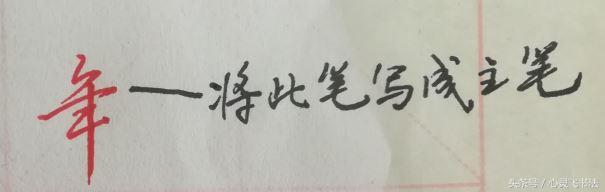 年——将此笔写成主笔
头条号/心灵飞书法